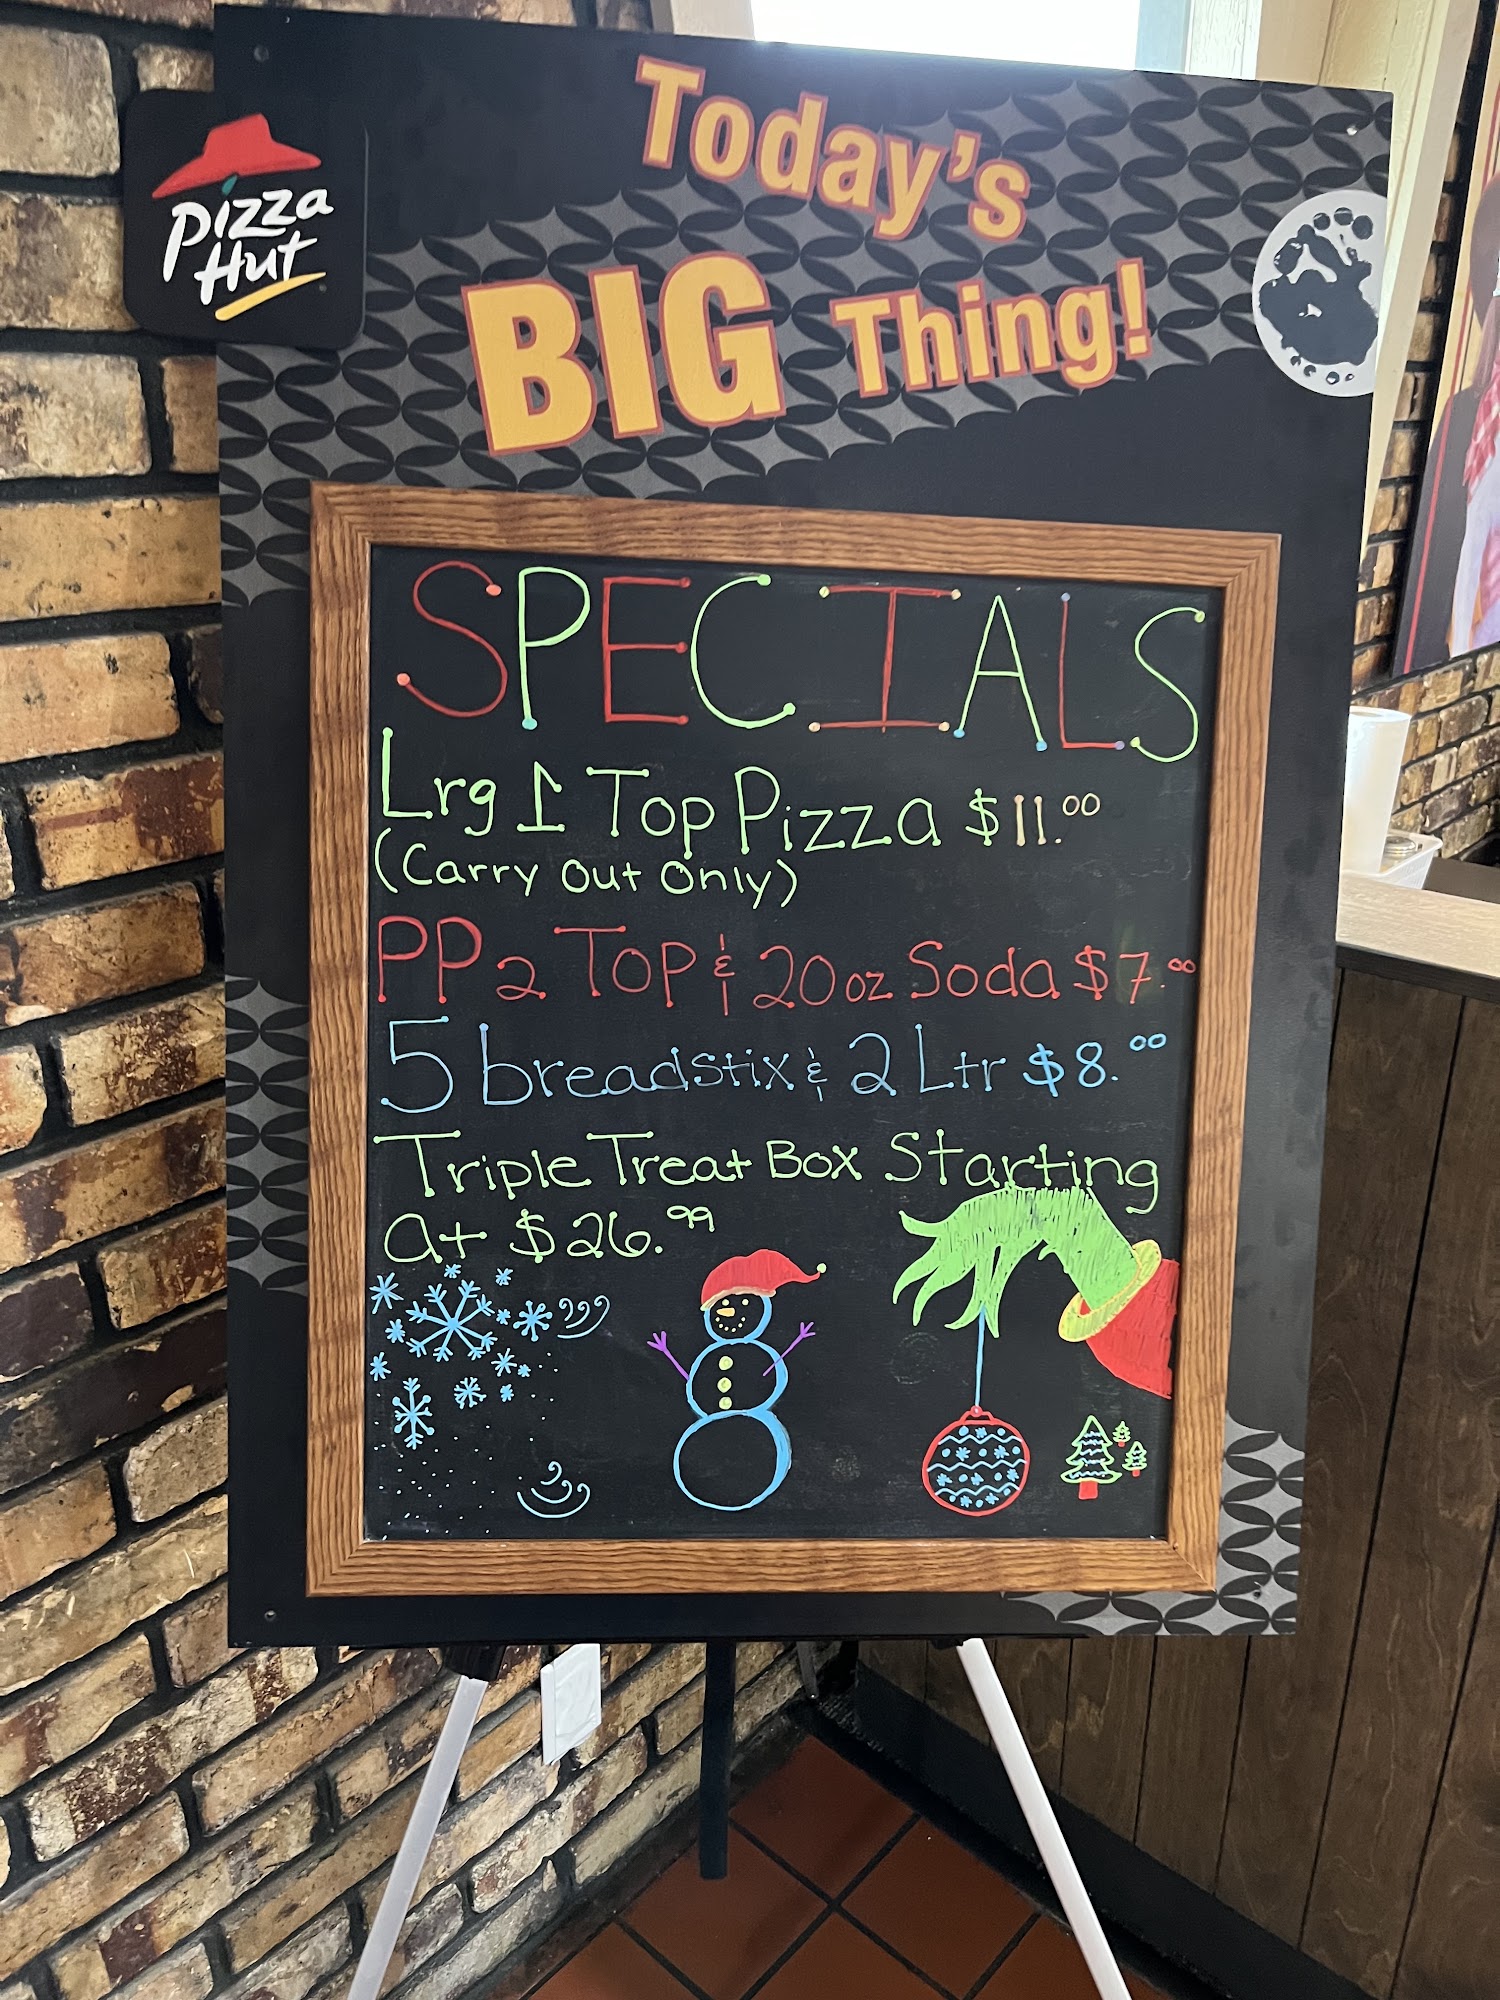 Pizza
Hut
Today's
BIG Thing!
SPECIALS
Lrg 1 Top Pizza $11.00
(Carry Out Only)
PP 2 Top & 20oz Soda $7.00
5 breadstix & 2 Ltr $8.00
Triple Treat Box Starting
at $26.99